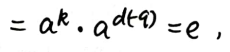 = a^k · a^{d(-q)} = e ,